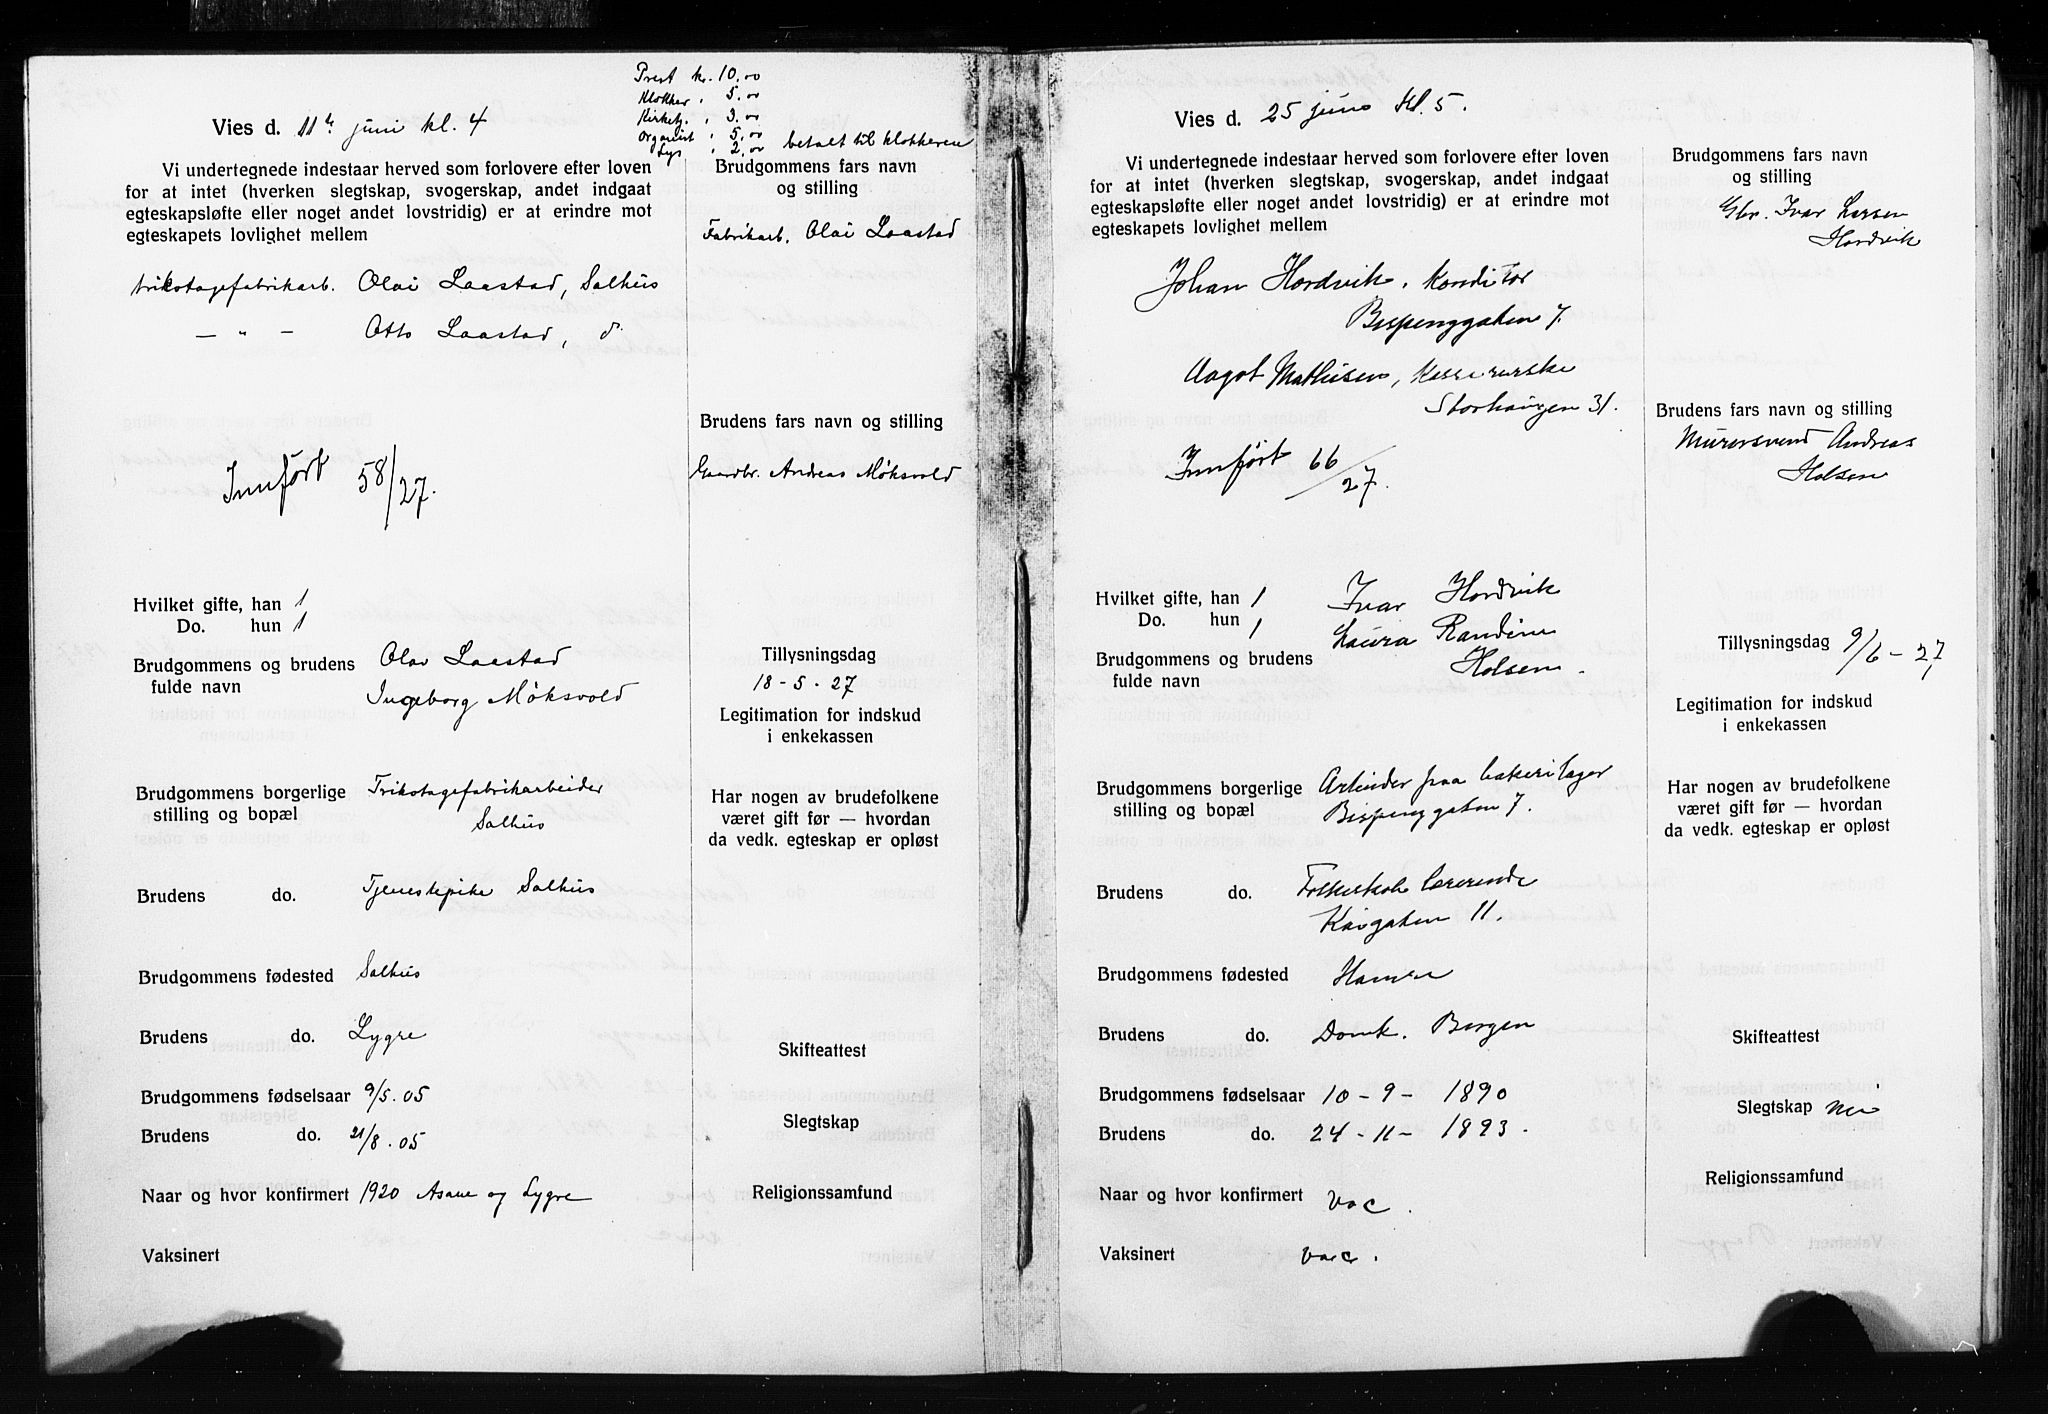 Prest kr. 10.00
Klokker " 5.00
Kirketj. " 3.00
Organist " 5.00
Lys " 2.00 betalt til klokkeren
Vies d. 11te juni kl. 4
Vi undertegnede indestaar herved som forlovere efter loven
for at intet (hverken slegtskap, svogerskap, andet indgaat
egteskapsløfte eller noget andet lovstridig) er at erindre mot
egteskapets lovlighet mellem
trikotagefabrikarb. Olai Laastad, Salhus
— " — Otto Laastad, d
Innført 58/27.
Hvilket gifte, han 1
Do. hun 1
Brudgommens og brudens fulde navn
Olav Laastad
Ingeborg Møksvold
Brudgommens borgerlige stilling og bopæl
Trikotagefabrikarbeider
Salhus
Brudens do. Tjenestepike Salhus
Brudgommens fødested Salhus
Brudens do. Lygre
Brudgommens fødselsaar 9/5.05
Brudens do. 21/8.05
Naar og hvor konfirmert 1920 Asane og Lygre
Vaksinert
Brudgommens fars navn
og stilling
Fabrikarb. Olai Laastad
Brudens fars navn og stilling
Gaardbr. Andreas Møksvold
Tillysningsdag
18-5-27
Legitimation for indskud
i enkekassen
Har nogen av brudefolkene
været gift før — hvordan
da vedk. egteskap er opløst
Skifteattest
Slegtskap
Religionssamfund
Vies d. 25 juni Kl. 5.
Vi undertegnede indestaar herved som forlovere efter loven
for at intet (hverken slegtskap, svogerskap, andet indgaat
egteskapsløfte eller noget andet lovstridig) er at erindre mot
egteskapets lovlighet mellem
Johan Hordvik, Konditor
Bispenggaten 7.
Aagot Mathisen, Kassererske
Storhaugen 31.
Innført 66/27.
Hvilket gifte, han 1
Do. hun 1
Brudgommens og brudens fulde navn
Ivar Hordvik
Laura Randine
Holsen.
Brudgommens borgerlige stilling og bopæl
Arbeider paa bakerilager
Bispenggaten 7.
Brudens do. Folkeskole lærerinde
Kaigaten 11.
Brudgommens fødested Hamre
Brudens do. Domk. Bergen
Brudgommens fødselsaar 10-9-1890
Brudens do. 24-11-1893.
Naar og hvor konfirmert vac.
Vaksinert vacc.
Brudgommens fars navn
og stilling
Gbr. Ivar Larsen
Hordvik
Brudens fars navn og stilling
Murersvend Andreas
Holsen
Tillysningsdag 9/6-27
Legitimation for indskud
i enkekassen
Har nogen av brudefolkene
været gift før — hvordan
da vedk. egteskap er opløst
Skifteattest
Slegtskap nei
Religionssamfund